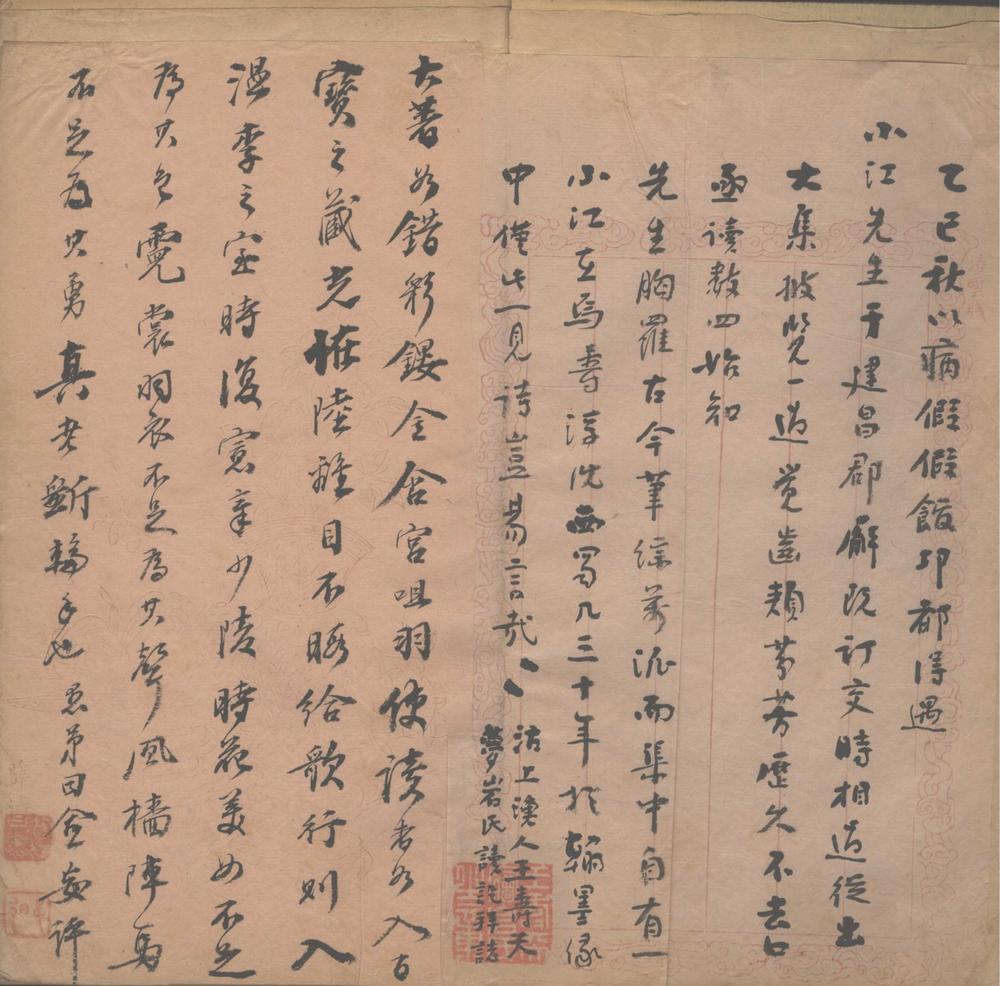 乙巳秋以病假假館邛都得遇
小江先生于建昌郡廨既訂交時相過從出
大集披覽一過覺齒頰芬芳歷久不去口
亟讀數四始知
先生胸羅古今筆綜萬派而集中自有一
小江在焉壽浮沈西蜀凡三十年於翰墨緣
中僅此一見詩豈易言哉
沽上漁人王壽天
夢岩氏讀訖拜誌
大著如錯彩鏤金含宮咀羽使讀者如入百
寶之藏光怪陸離目不暇給歌行則入
溫李之室時復少陵時花美女不足
為其色霓裳羽衣不足為其聲風檣陣馬
不足為其勇真老斲輪手也愚弟田評